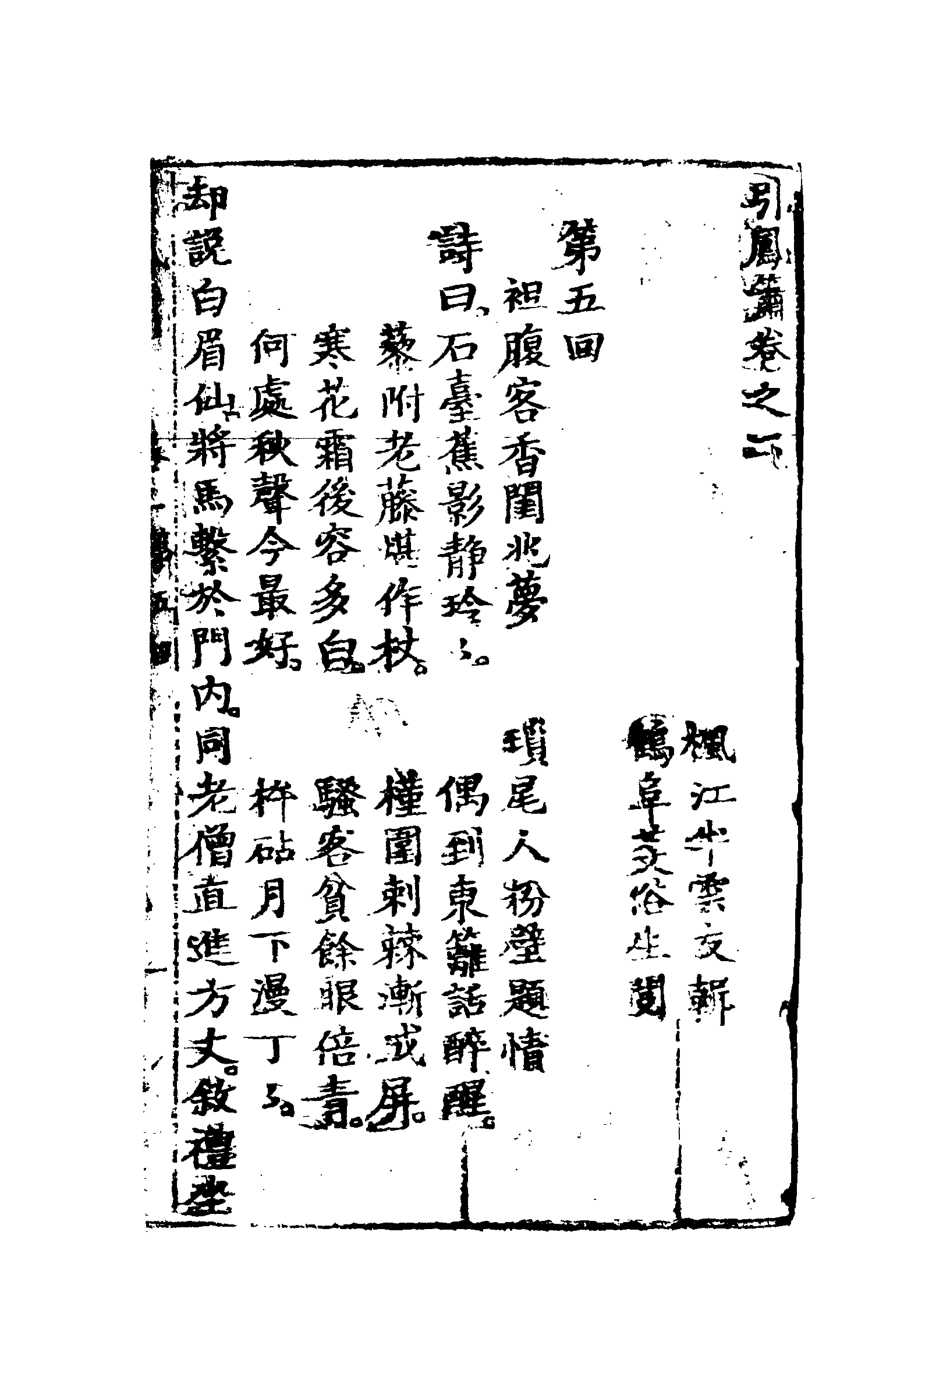 引鳳簫卷之二
楓江半雲友輯
鶴阜芟俗生閱
第五回
袒腹客香閨兆夢　瑣尾人粉壁題情
詩曰、石臺蕉影静玲〻。偶到東籬話醉醒。
藜附老藤堪作杖。槿圍刺棘漸成屏。
寒花霜後容多白。騷客貧餘眼倍青。
何處秋聲今最好。杵砧月下漫丁〻。
却説白眉仙將馬繫於門内。同老僧直進方丈。敘禮坐
第五回